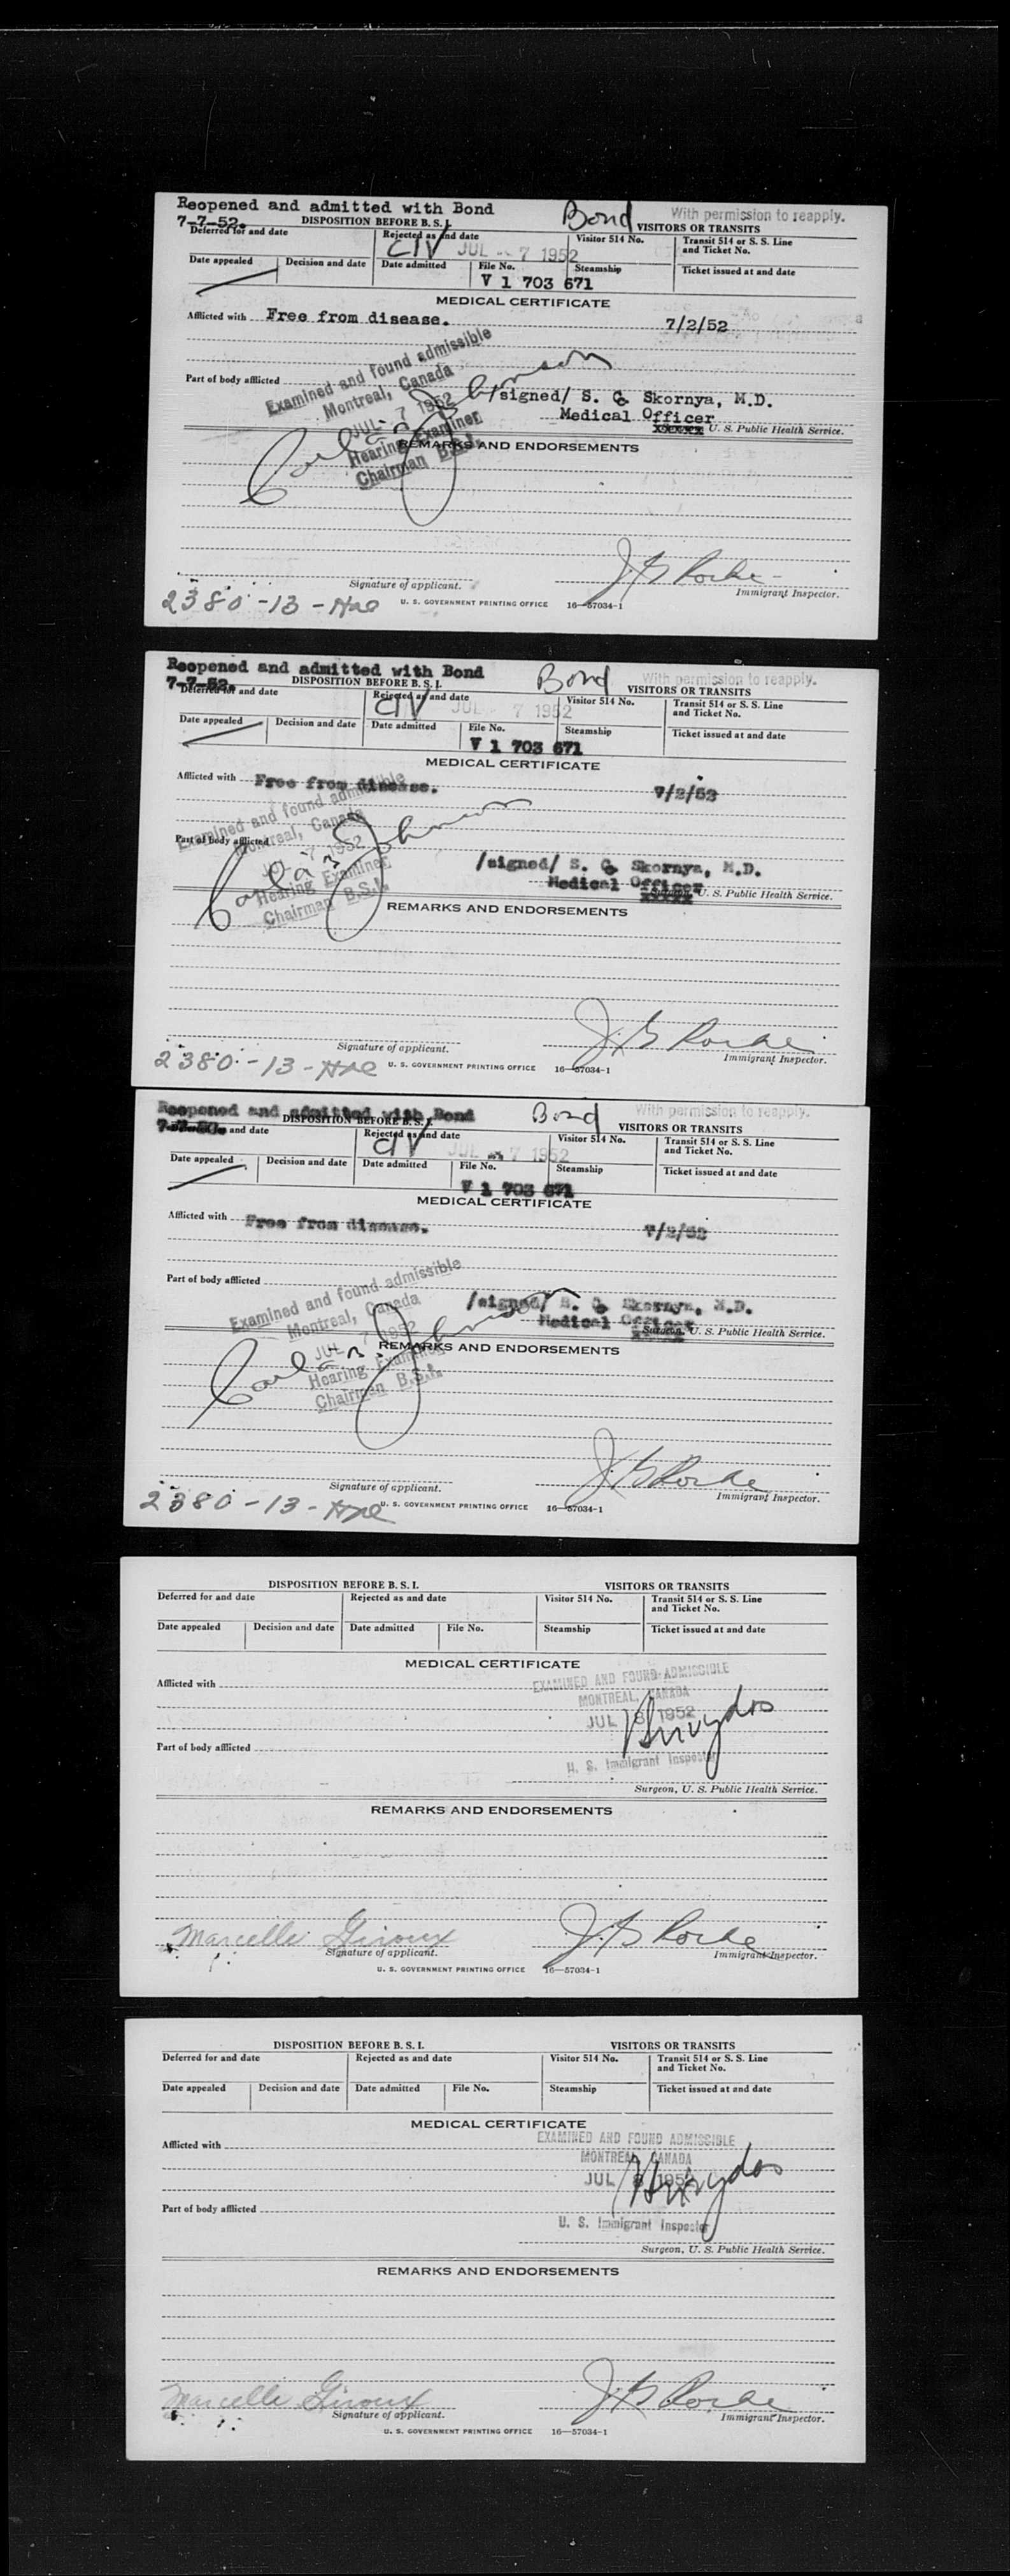 Reopened and admitted with Bond
Bond
With permission to reapply.
7-7-52.
DISPOSITION BEFORE B. S. I.
VISITORS OR TRANSITS
Deferred for and date
Rejected as and date
Visitor 514 No.
Transit 514 or S. S. Line and Ticket No.
JUL - 7 1952
Date appealed
Decision and date
Date admitted
File No.
Steamship
Ticket issued at and date
V 1 703 671
MEDICAL CERTIFICATE
Afflicted with Free from disease. 7/2/52
Examined and found admissible
Montreal, Canada
Part of body afflicted
JUL 7 1952
/signed/ S. C. Skornya, M.D.
Medical Officer
U. S. Public Health Service.
Hearing Examiner
Chairman B.S.I.
Carl Johnson
REMARKS AND ENDORSEMENTS
Signature of applicant.
Immigrant Inspector.
2380-13-
U. S. GOVERNMENT PRINTING OFFICE 16—57034-1
Reopened and admitted with Bond
Bond
With permission to reapply.
7-7-52.
DISPOSITION BEFORE B. S. I.
VISITORS OR TRANSITS
Deferred for and date
Rejected as and date
Visitor 514 No.
Transit 514 or S. S. Line and Ticket No.
JUL 7 1952
Date appealed
Decision and date
Date admitted
File No.
Steamship
Ticket issued at and date
V 1 703 671
MEDICAL CERTIFICATE
Afflicted with Free from disease. 7/2/52
Examined and found admissible
Montreal, Canada
Part of body afflicted
7 1952
/signed/ S. C. Skornya, M.D.
Medical Officer
Surgeon, U. S. Public Health Service.
Hearing Examiner
Chairman B.S.I.
Carl Johnson
REMARKS AND ENDORSEMENTS
Signature of applicant.
Immigrant Inspector.
2380-13-
U. S. GOVERNMENT PRINTING OFFICE 16—57034-1
Reopened and admitted with Bond
Bond
With permission to reapply.
DISPOSITION BEFORE B. S. I.
VISITORS OR TRANSITS
7-7-52. and date
Rejected as and date
Visitor 514 No.
Transit 514 or S. S. Line and Ticket No.
JUL 7 1952
Date appealed
Decision and date
Date admitted
File No.
Steamship
Ticket issued at and date
V 1 703 671
MEDICAL CERTIFICATE
Afflicted with Free from disease. 7/2/52
Part of body afflicted
Examined and found admissible
Montreal, Canada
/signed/ S. C. Skornya, M.D.
Medical Officer
Surgeon, U. S. Public Health Service.
JUL 7 1952
Hearing Examiner
Chairman B.S.I.
Carl Johnson
REMARKS AND ENDORSEMENTS
Signature of applicant.
Immigrant Inspector.
2380-13-
U. S. GOVERNMENT PRINTING OFFICE 16—57034-1
DISPOSITION BEFORE B. S. I.
VISITORS OR TRANSITS
Deferred for and date
Rejected as and date
Visitor 514 No.
Transit 514 or S. S. Line and Ticket No.
Date appealed
Decision and date
Date admitted
File No.
Steamship
Ticket issued at and date
MEDICAL CERTIFICATE
Afflicted with
EXAMINED AND FOUND ADMISSIBLE
MONTREAL, CANADA
JUL 8 1952
Part of body afflicted
U. S. Immigrant Inspector
Surgeon, U. S. Public Health Service.
REMARKS AND ENDORSEMENTS
Marcelle Giroux
Signature of applicant.
Immigrant Inspector.
U. S. GOVERNMENT PRINTING OFFICE 16—57034-1
DISPOSITION BEFORE B. S. I.
VISITORS OR TRANSITS
Deferred for and date
Rejected as and date
Visitor 514 No.
Transit 514 or S. S. Line and Ticket No.
Date appealed
Decision and date
Date admitted
File No.
Steamship
Ticket issued at and date
MEDICAL CERTIFICATE
EXAMINED AND FOUND ADMISSIBLE
Afflicted with
MONTREAL, CANADA
JUL 8 1952
Part of body afflicted
U. S. Immigrant Inspector
Surgeon, U. S. Public Health Service.
REMARKS AND ENDORSEMENTS
Marcelle Giroux
Signature of applicant.
Immigrant Inspector.
U. S. GOVERNMENT PRINTING OFFICE 16—57034-1